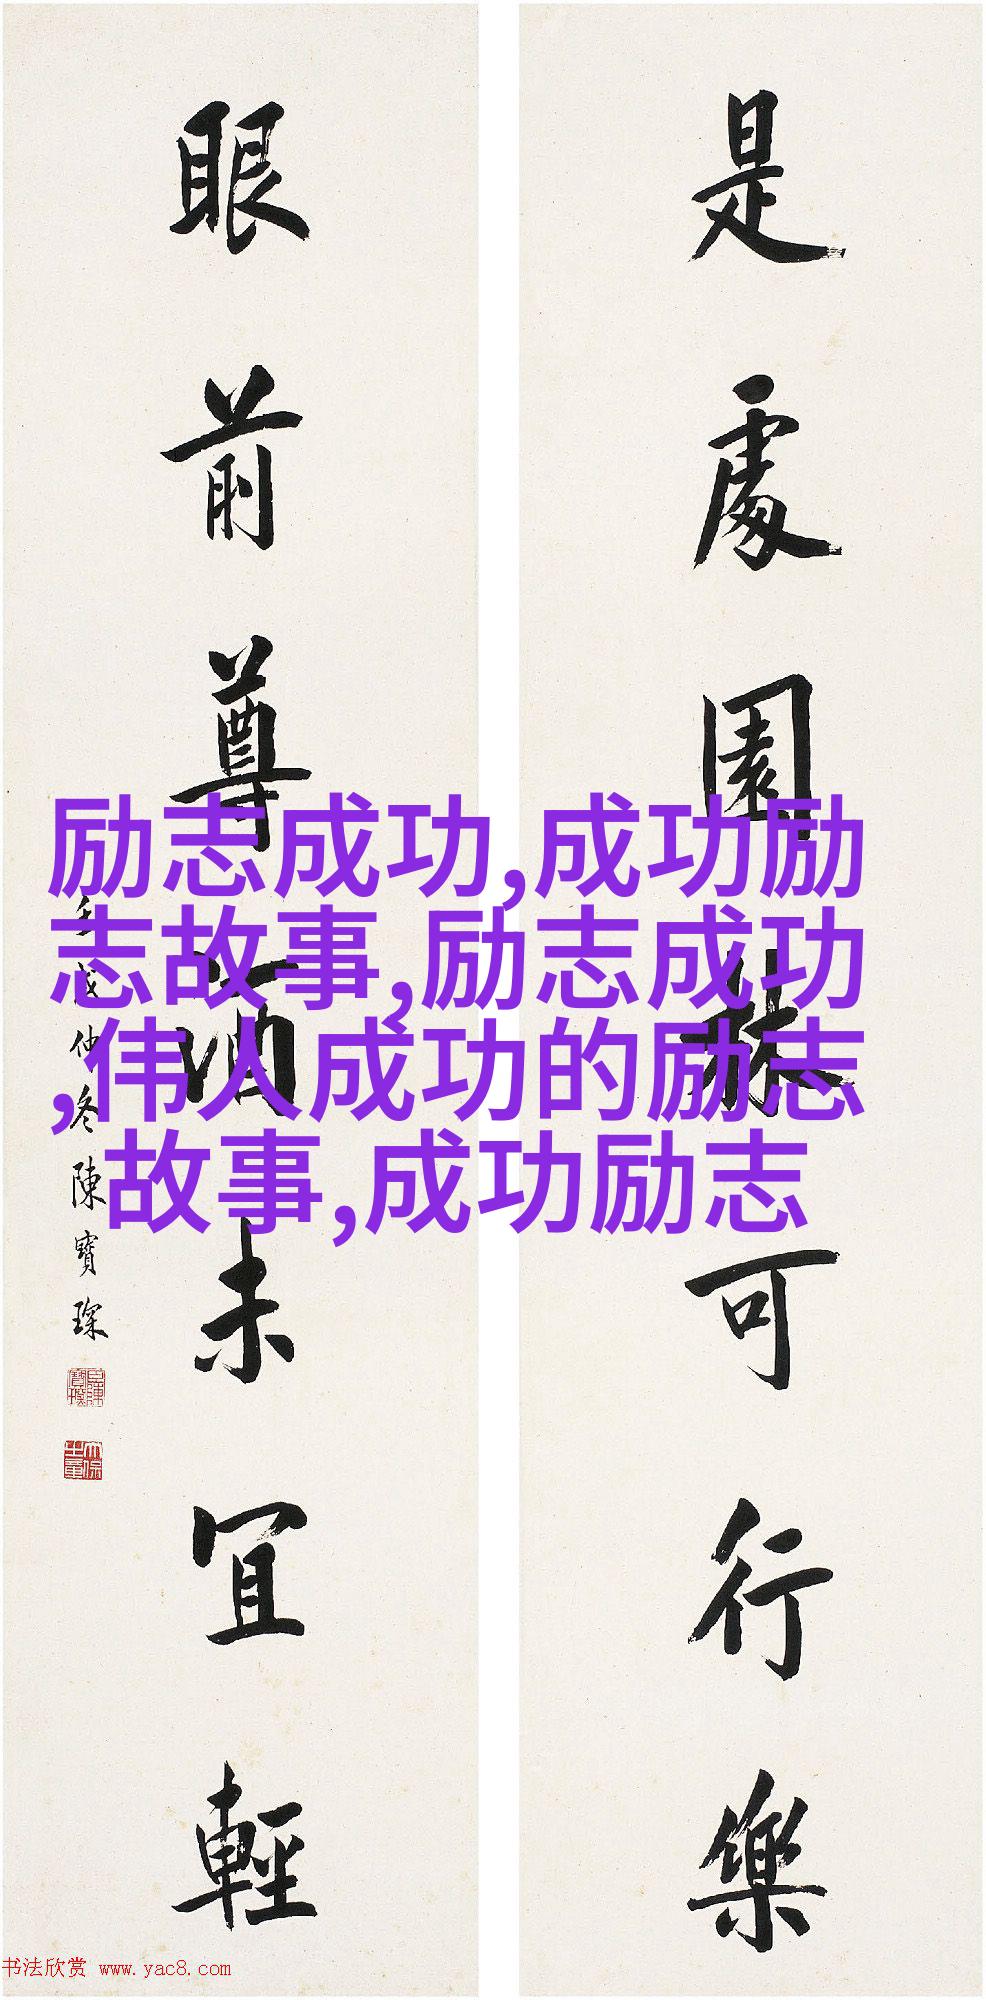 是處園林可行樂
眼前尊酒未宜輕
壬戌仲冬陳寶琛
励志成功,成功励
志故事,励志成功
,伟人成功的励志
故事,成功励志
书法欣赏 www.yac8.com